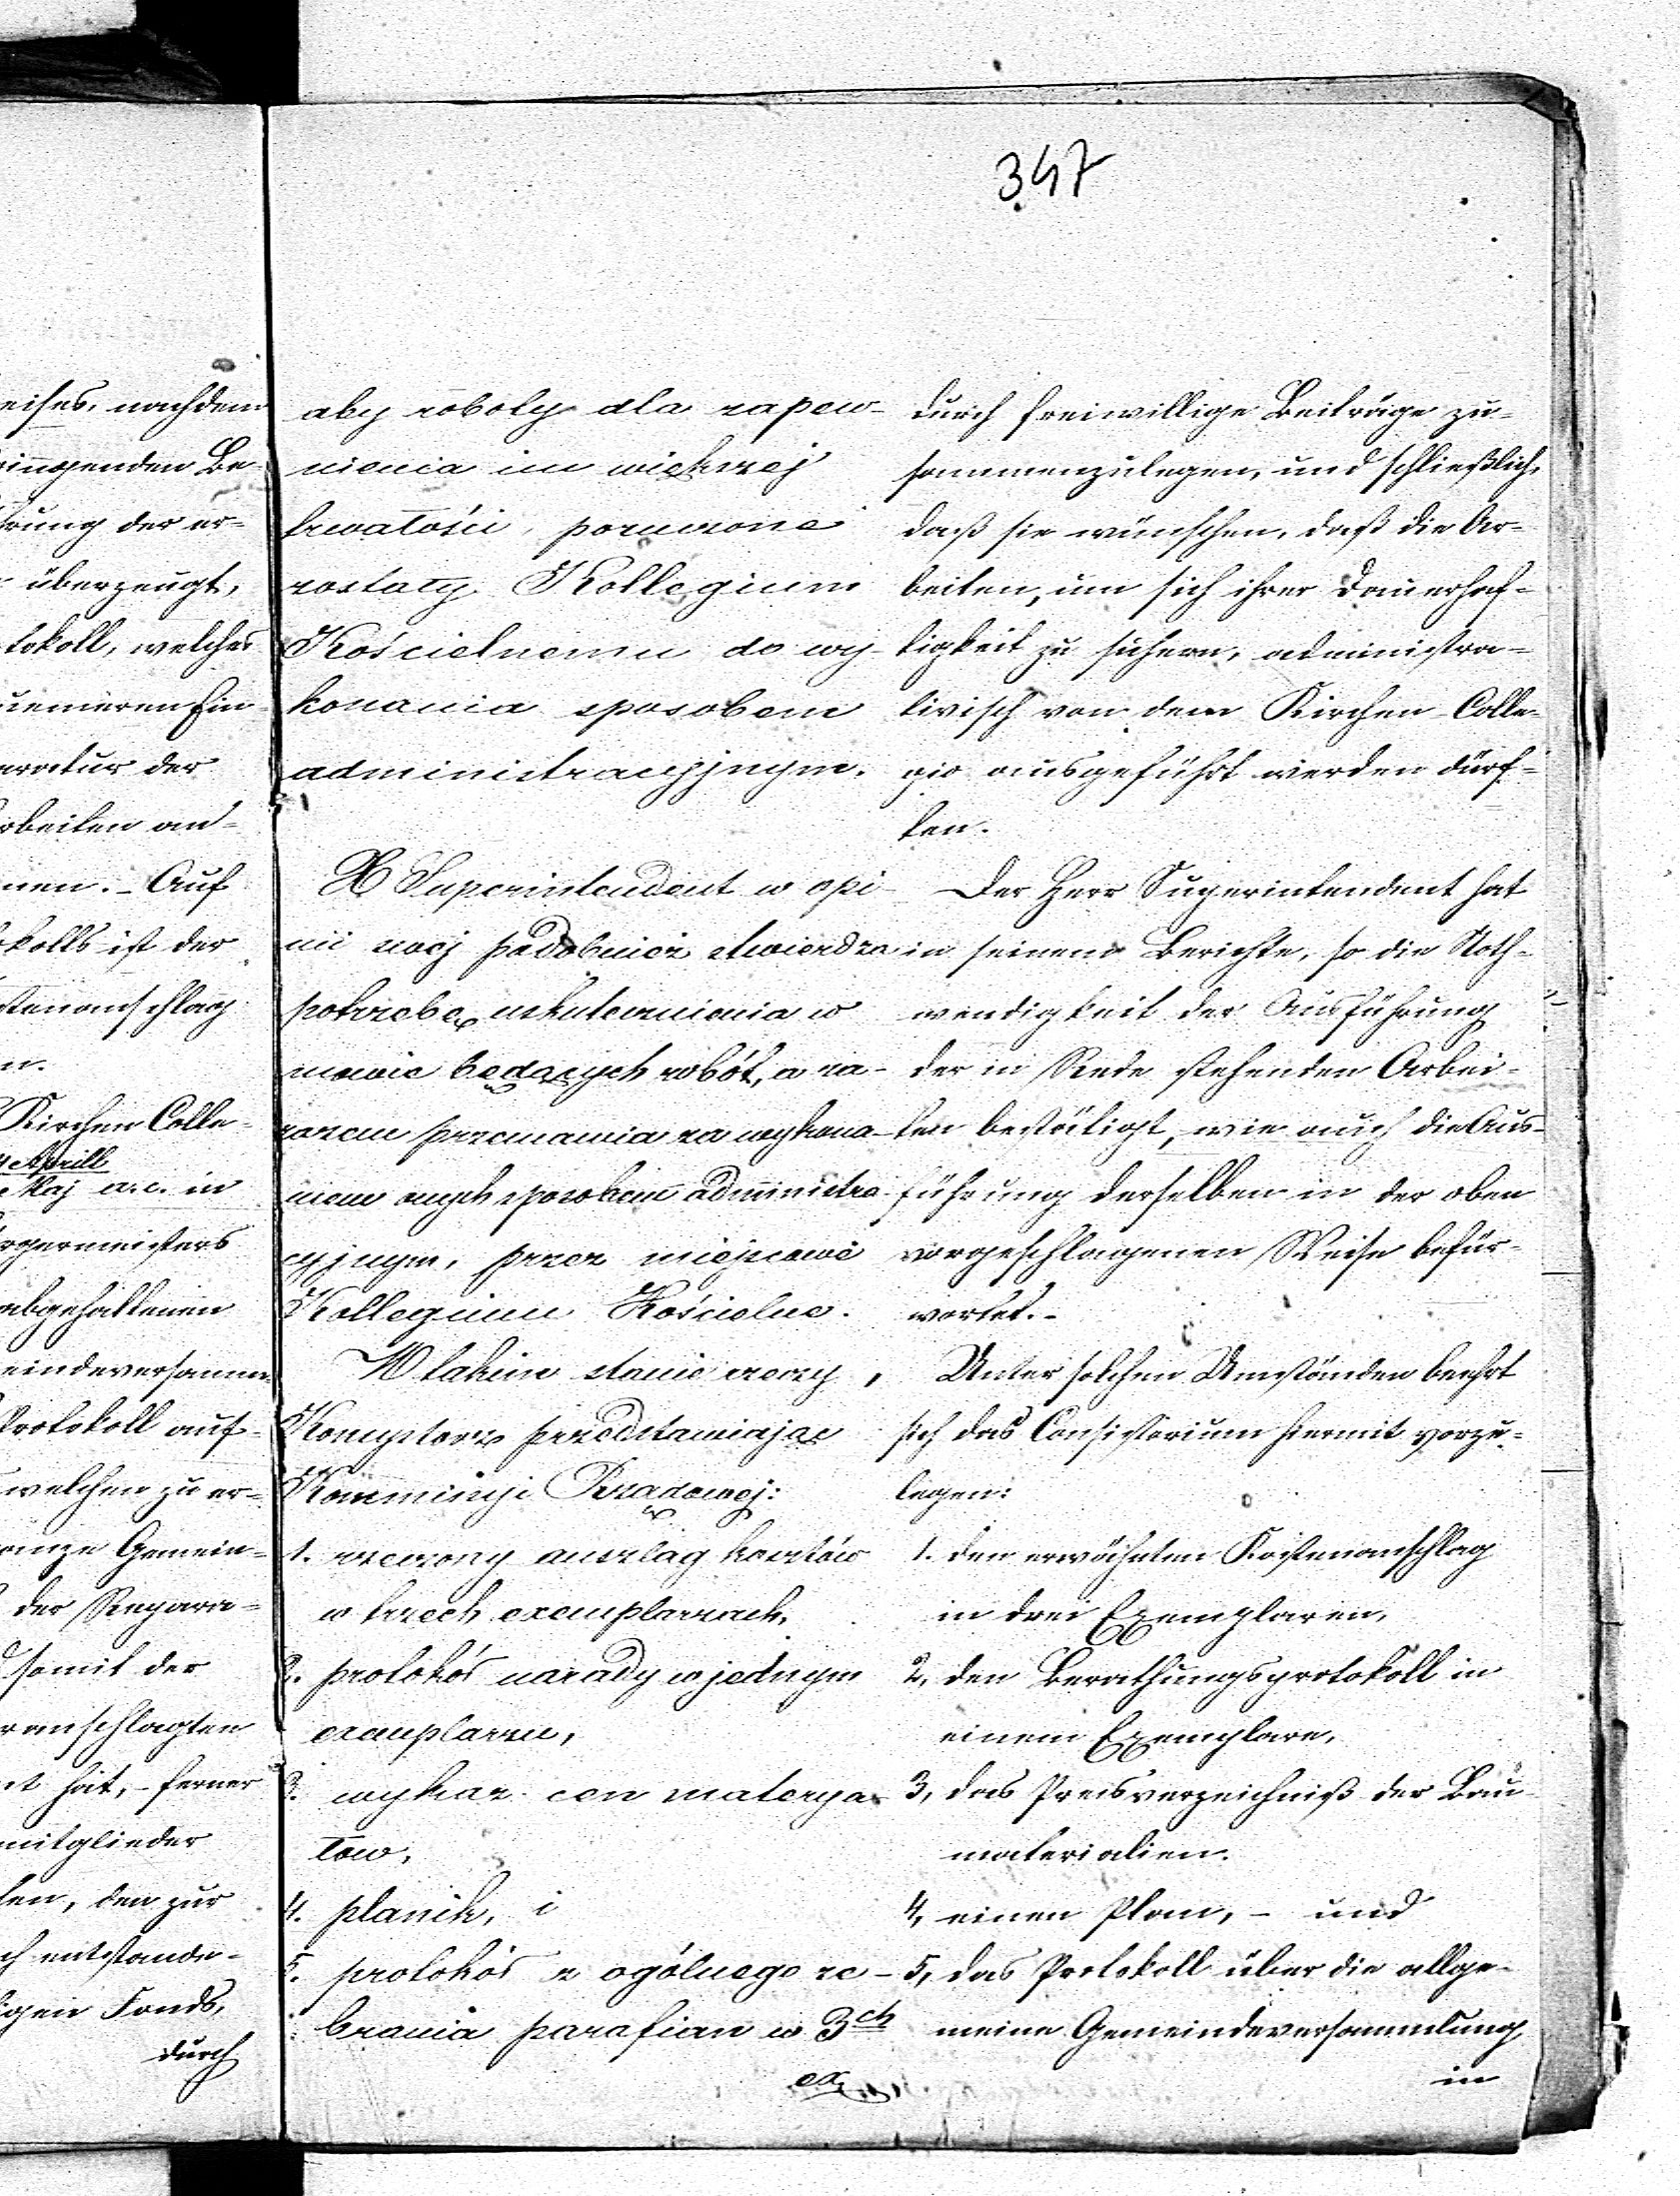 347
eises, nachdem
ingenden Be-
rung der er-
überzeugt,
tokoll, welches
eratur der
rbeiten an-
nen. - Auf
okolls ist der
stenanschlag
n.
Kirchen Colle-
Aprill
Maj a. c. in
rgermeisters
abgehaltenen
eindeversamm-
Protokoll auf-
welchen zu er-
anze Gemein-
der Repara-
somit der
ranschlagten
et hat, - ferner
mitglieder
ten, den zur
ch entstande-
igen Fonds,
durch
aby roboty dla zapew-
nienia im większej
trwałości, poruczone
zostały Kollegium
Kościelnemu do wy-
konania sposobem
administracyjnym.
X Superintendent w opi-
nii swej podobnież stwierdza
potrzebę uskutecznienia w
mowie będących robót, a za-
razem przemawia za wykona-
niem onych sposobem administra-
cyjnym, przez miejscowe
Kollegium Kościelne.
W takim stanie rzeczy,
Konsystorz przedstawiając
Kommissyi Rządowej:
1. rzeczony anszlag kosztów
w trzech exemplarzach,
2. protokół narady w jednym
exemplarzu,
3. wykaz cen materya-
łów,
4. planik, i
5. protokół z ogólnego ze-
brania parafian w 3ch
ex.
durch freiwillige Beiträge zu-
sammenzulegen, und schließlich,
daß sie wünschen, daß die Ar-
beiten, um sich ihrer Dauerhaf-
tigkeit zu sichern, administra-
tivisch von dem Kirchen-Colle-
gio ausgeführt werden dürf-
ten.
Der Herr Superintendent hat
in seinem Berichte, so die Noth-
wendigkeit der Ausführung
der in Rede stehenden Arbei-
ten bestätigt, wie auch die Aus-
führung derselben in der oben
vorgeschlagenen Weise befür-
wortet. -
Unter solchen Umständen beehrt
sich das Consistorium hiermit vorzu-
legen:
1. den erwähnten Kostenanschlag
in drei Exemplaren,
2, den Berathungsprotokoll in
einem Exemplare,
3, das Preisverzeichniß der Bau-
materialien.
4, einen Plan, - und
5, das Protokoll über die allge-
meine Gemeindeversammlung
in